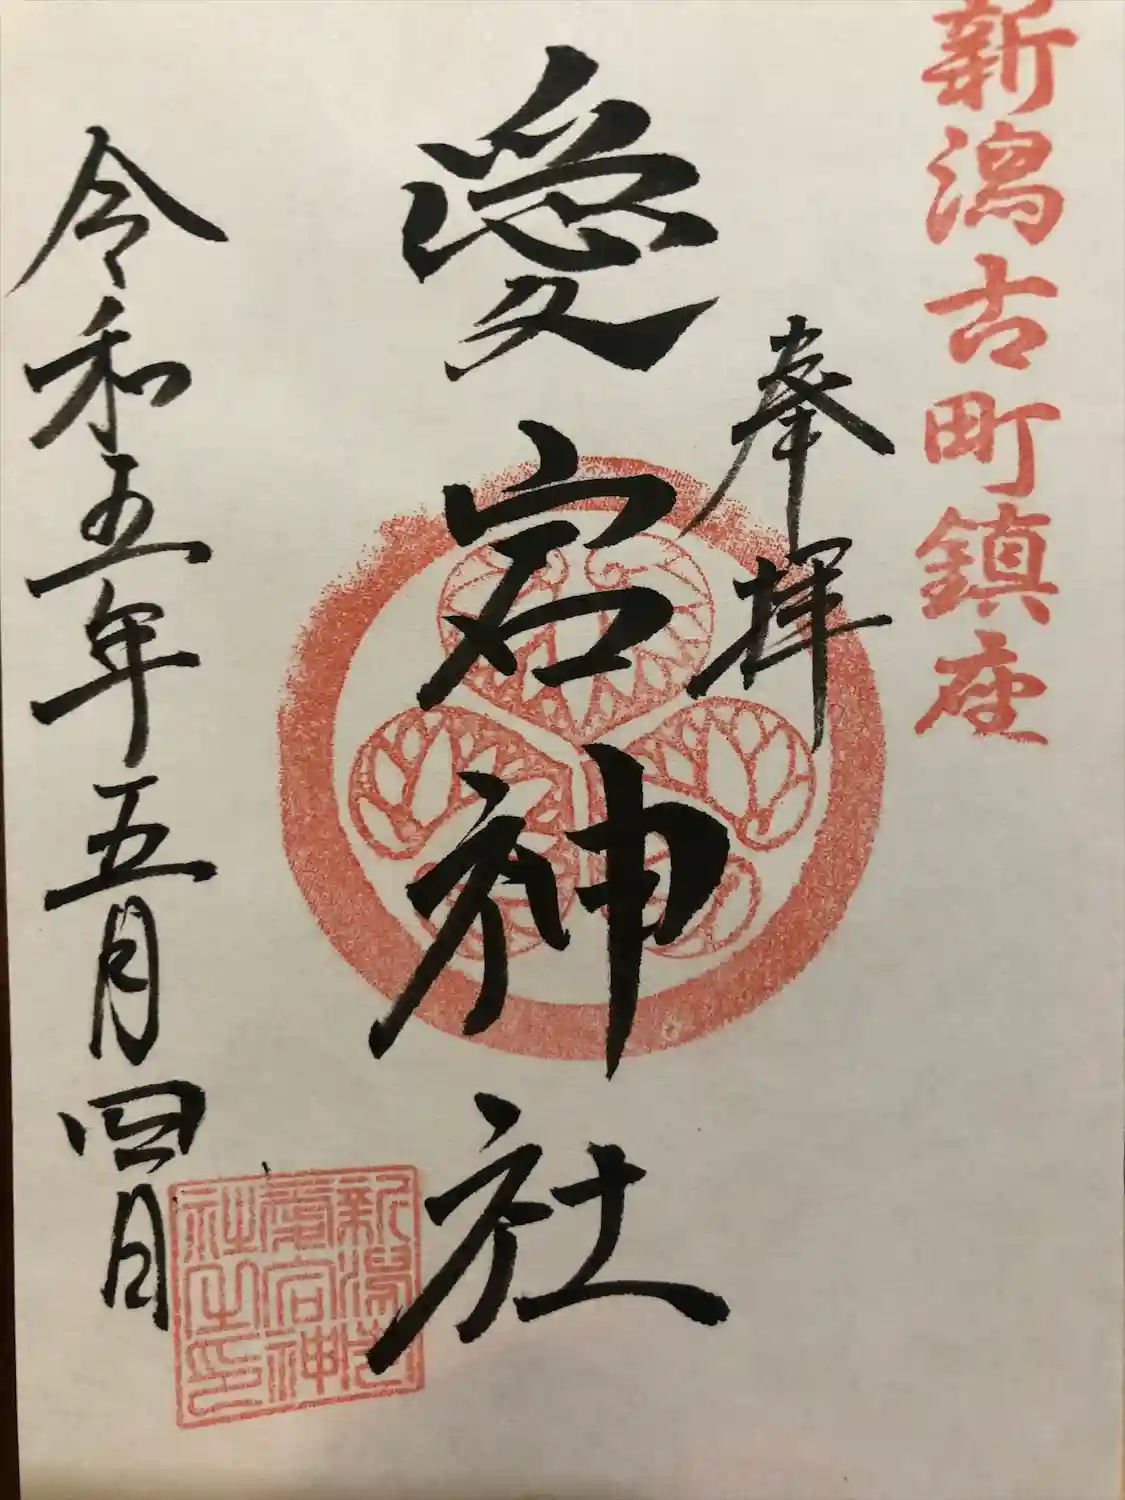 新潟古町鎮座
奉拝
愛宕神社
令和五年五月四日
新潟古
愛宕神
社之印